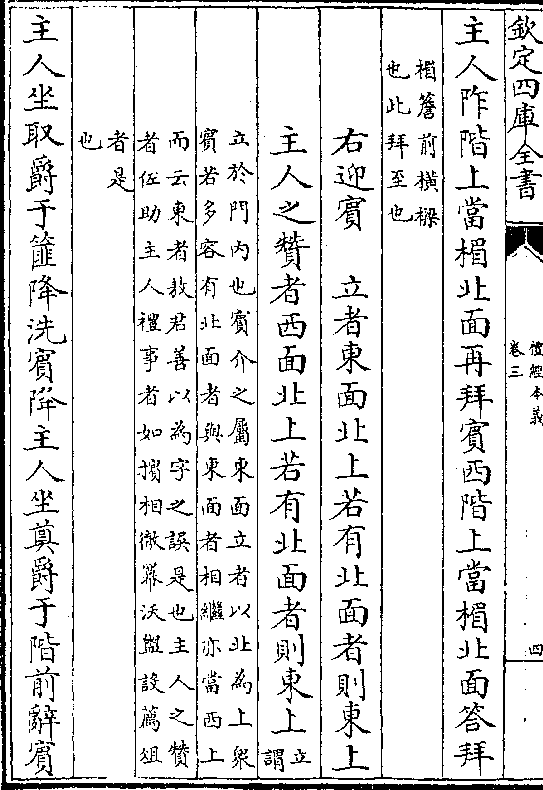 欽定四庫全書
禮經本義
卷三
四
主人阼階上當楣北面再拜賓西階上當楣北面答拜
楣簷前橫樑
也此拜至也
右迎賓　立者東面北上若有北面者則東上
主人之贊者西面北上若有北面者則東上
立謂
立於門内也賓介之屬東面立者以北為上衆
賓若多容有北面者與東面者相繼亦當西上
而云東者敖君善以為字之誤是也主人之贊
者佐助主人禮事者如擯相徹羃沃盥設薦俎
者是
也
主人坐取爵于篚降洗賓降主人坐奠爵于階前辭賓